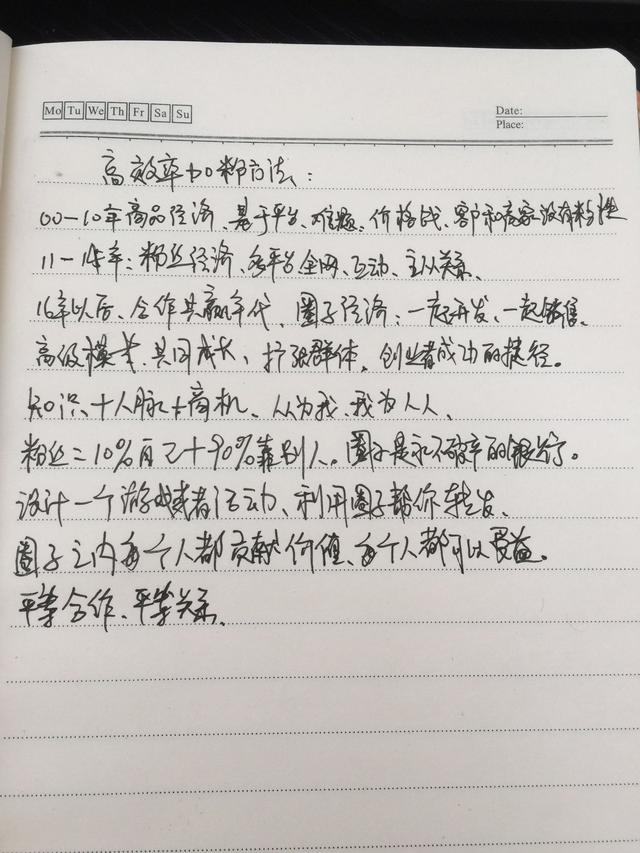 Mo Tu We Th Fr Sa Su
Date:
Place:
高效率加粉方法：
00-10年商品经济、基于平台、难题、价格战、客户和商家没有粘性
11-15年：粉丝经济、多平台全网、互动、主从关系、
16年以后、合作共赢年代、圈子经济：一起开发、一起销售、
高级模式、共同成长、扩张群体、创业者成功的捷径。
知识、+人脉+商机、人人为我、我为人人、
粉丝=10%自己+90%靠别人。圈子是永不破产的银行。
设计一个游戏或者活动、利用圈子帮你转发、
圈子之内每个人都贡献价值、每个人都可以受益。
平等合作、平等关系、